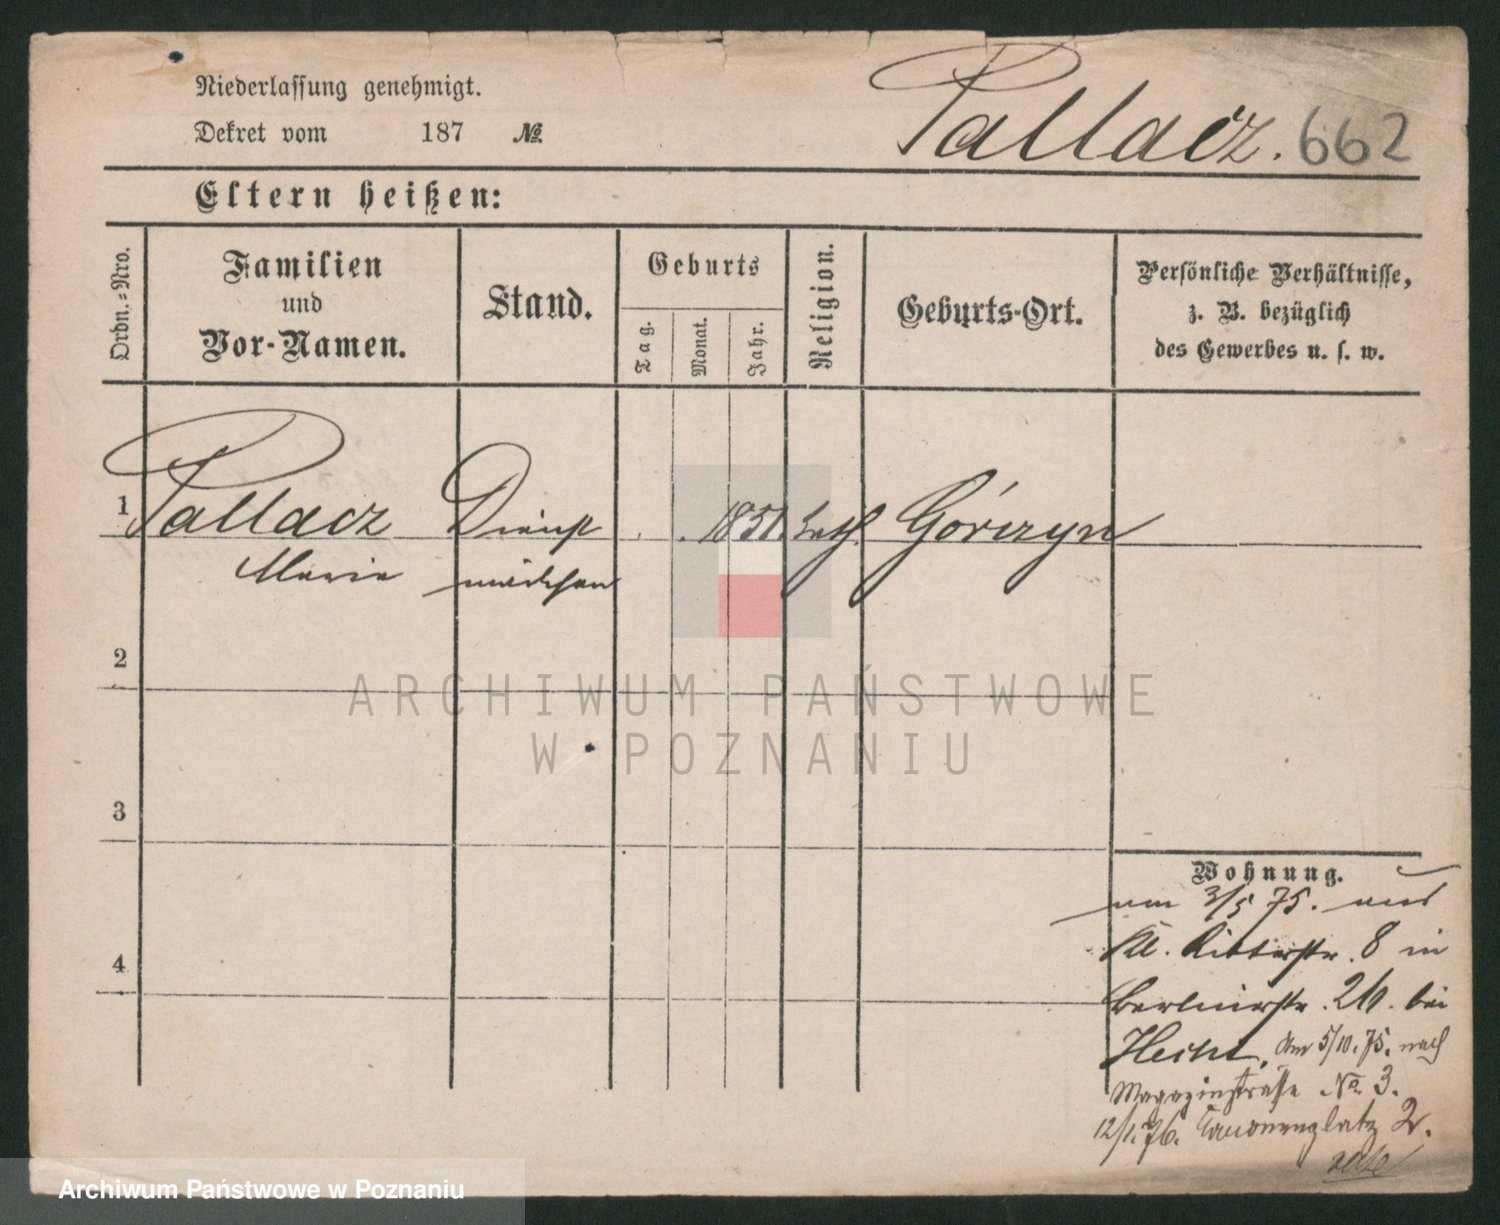 Niederlassung genehmigt.
Dekret vom 187 №.
Pallacz. 662
Eltern heißen:
Ordn.=Nro.
Familien
und
Vor-Namen.
Stand.
Geburts
Tag.
Monat.
Jahr.
Religion.
Geburts-Ort.
Persönliche Verhältnisse,
z. B. bezüglich
des Gewerbes u. s. w.
1 Pallacz Dienst . . 1851. kath. Górczyn
Marie mädchen
2
ARCHIWUM PAŃSTWOWE
W POZNANIU
3
4
Wohnung.
am 3/5 75. aus
Kl. Ritterstr. 8 in
Berlinerstr. bei
Hecht, Am 5/10. 75. nach
Magazinstraße No. 3.
12/1. 76. Canonenplatz 2.
Archiwum Państwowe w Poznaniu